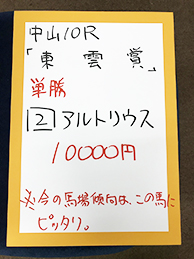 中山10R
「東雲賞」
単勝
2 アルトリウス
10000円
※今の馬場傾向は、この馬に
ピッタリ。